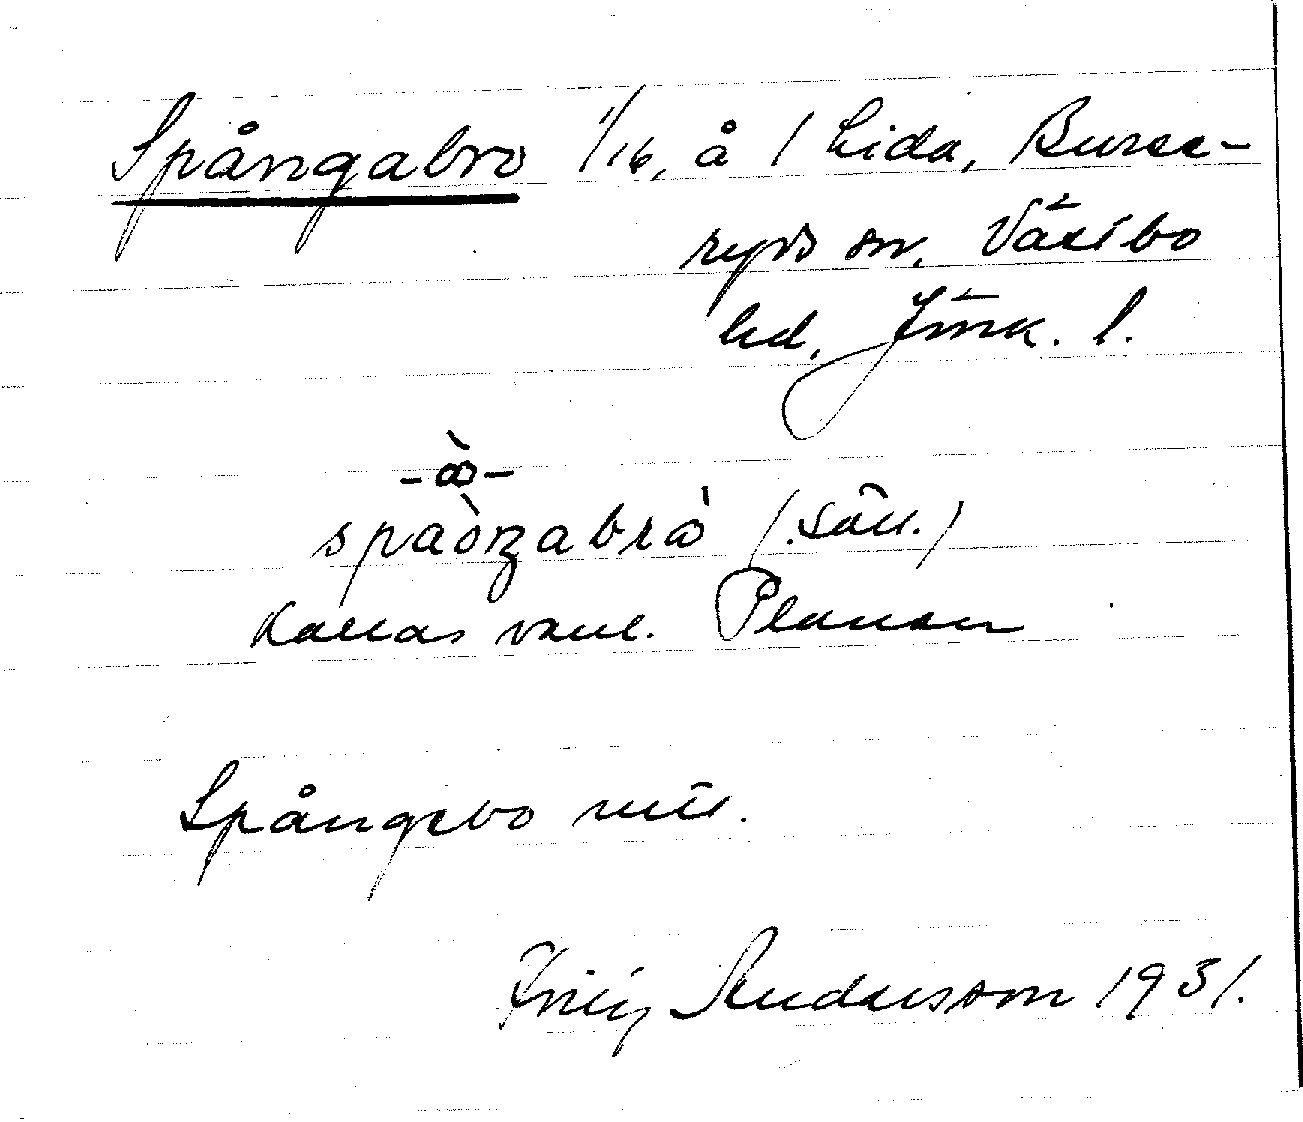 Spångabro 1/16, å 1 Lida, Burse-
ryds sn, Västbo
hd, Jönk. l.
-ò-
spaòŋabrò (.säll.)
Kallas vanl. Planen
Spångebo
Fritz Andersson 1931.